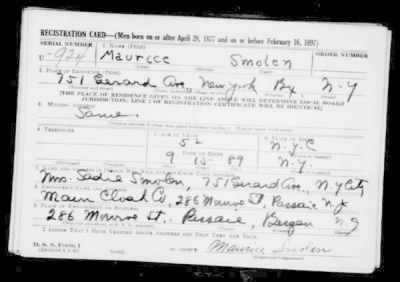 REGISTRATION CARD—(Men born on or after April 28, 1877 and on or before February 16, 1897)
SERIAL NUMBER 1. NAME (Print)
U-924 Maurice Smolen
2. PLACE OF RESIDENCE (Print)
751 Gerard Ave., New York Bx. N-Y
[THE PLACE OF RESIDENCE GIVEN ON THE LINE ABOVE WILL DETERMINE LOCAL BOARD
JURISDICTION; LINE 2 OF REGISTRATION CERTIFICATE WILL BE IDENTICAL]
3. MAILING ADDRESS
Same
4. TELEPHONE 5. AGE IN YEARS 6. PLACE OF BIRTH
52 N.Y.C
DATE OF BIRTH
9 15 89 N.Y.
Mrs. Sadie Smolen, 751 Gerard Ave., N.Y City
8. EMPLOYER'S NAME AND ADDRESS
Main Cloak Co, 286 Monroe St, Passaic N.J
9. PLACE OF EMPLOYMENT OR BUSINESS
286 Monroe St., Passaic, Bergen N.J
I AFFIRM THAT I HAVE VERIFIED ABOVE ANSWERS AND THAT THEY ARE TRUE.
Maurice Smolen
D. S. S. Form 1